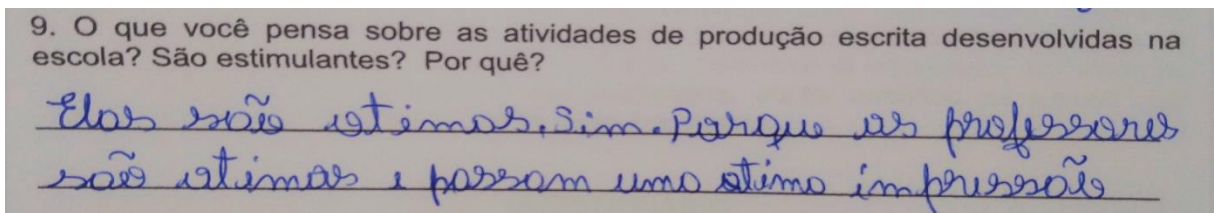 9. O que você pensa sobre as atividades de produção escrita desenvolvidas na
escola? São estimulantes? Por quê?
Elas são otimas. Sim. Porque as professores
são otimas e passam uma otima impressão